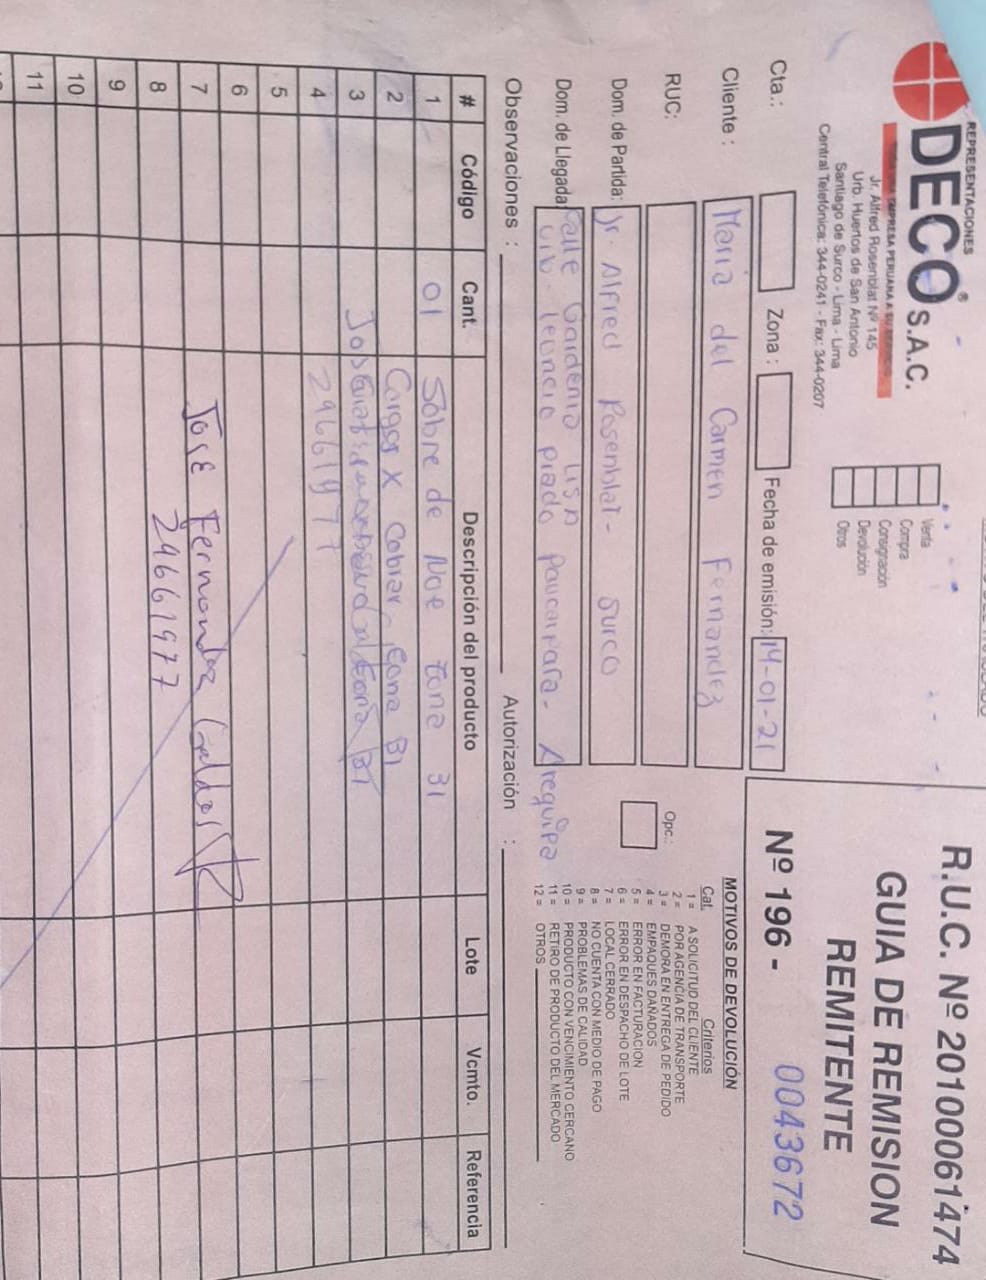 REPRESENTACIONES
DECO® S.A.C.
EMPRESA PERUANA A SU
Jr. Alfred Rosenblat Nº 145
Urb. Huertos de San Antonio
Santiago de Surco - Lima - Lima
Central Telefónica: 344-0241 - Fax: 344-0207
Venta
Compra
Consignación
Devolución
Otros
R.U.C. Nº 20100061474
GUIA DE REMISION
REMITENTE
Nº 196 - 0043672
Cta.: Zona : Fecha de emisión: 14-01-21
Cliente : Maria del Carmen Fernandez
RUC:
Dom. de Partida: Jr. Alfred Rosenblat - Surco
Opc.:
Dom. de Llegada: Calle Gardenia
Leoncio prado Paucarpara - Arequipa
MOTIVOS DE DEVOLUCIÓN
Cat. Criterios
1 = A SOLICITUD DEL CLIENTE
2 = POR AGENCIA DE TRANSPORTE
3 = DEMORA EN ENTREGA DE PEDIDO
4 = EMPAQUES DAÑADOS
5 = ERROR EN FACTURACION
6 = ERROR EN DESPACHO DE LOTE
7 = LOCAL CERRADO
8 = NO CUENTA CON MEDIO DE PAGO
9 = PROBLEMAS DE CALIDAD
10 = PRODUCTO CON VENCIMIENTO CERCANO
11 = RETIRO DE PRODUCTO DEL MERCADO
12 = OTROS
Observaciones : Autorización :
# Código Cant. Descripción del producto Lote Vcmto. Referencia
1 01 Sobre de Not Zona 31
2 Cargos X Cobrar
3
4 29661977
5
6
7 José Fernandez Galdos
8 29661977
9
10
11